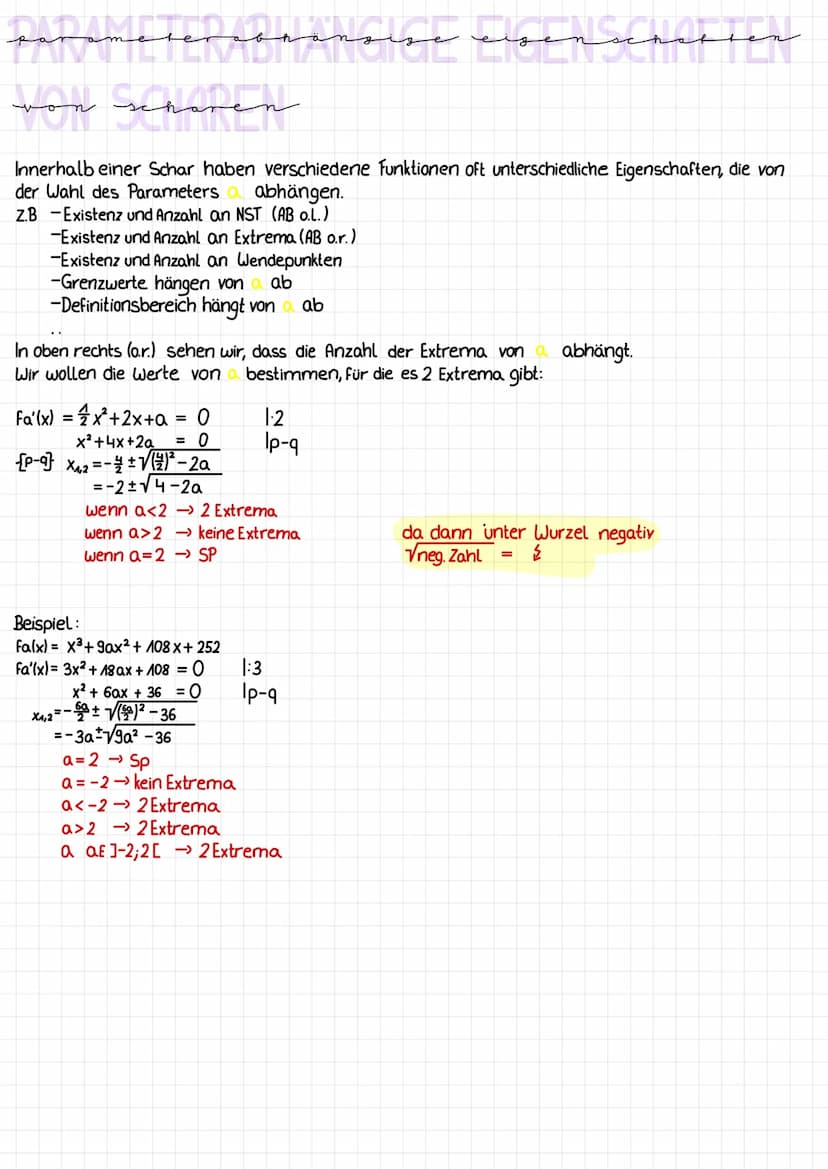 PARAMETERABHÄNGIGE EIGENSCHAFTEN
parameterabhängige eigenschaften
VON SCHAREN
von scharen
Innerhalb einer Schar haben verschiedene Funktionen oft unterschiedliche Eigenschaften, die von
der Wahl des Parameters a abhängen.
Z.B -Existenz und Anzahl an NST (AB o.l.)
-Existenz und Anzahl an Extrema (AB o.r.)
-Existenz und Anzahl an Wendepunkten
-Grenzwerte hängen von a ab
-Definitionsbereich hängt von a ab
..
In oben rechts (o.r.) sehen wir, dass die Anzahl der Extrema von a abhängt.
Wir wollen die Werte von a bestimmen, für die es 2 Extrema gibt:
Fa'(x) = 1/2 x² + 2x + a = 0 |·2
x² + 4x + 2a = 0 |p-q
{p-q} x₁,₂ = -4/2 ± √(4/2)² - 2a
= -2 ± √4 - 2a
wenn a<2 → 2 Extrema
wenn a>2 → keine Extrema da dann unter Wurzel negativ
wenn a=2 → SP √neg. Zahl = ↯
Beispiel:
Fa(x) = x³ + 9ax² + 108x + 252
Fa'(x) = 3x² + 18ax + 108 = 0 |:3
x² + 6ax + 36 = 0 |p-q
x₁,₂ = -6a/2 ± √(6a/2)² - 36
= -3a ± √9a² - 36
a=2 → Sp
a=-2 → kein Extrema
a<-2 → 2 Extrema
a>2 → 2 Extrema
a a∈]-2;2[ → 2 Extrema